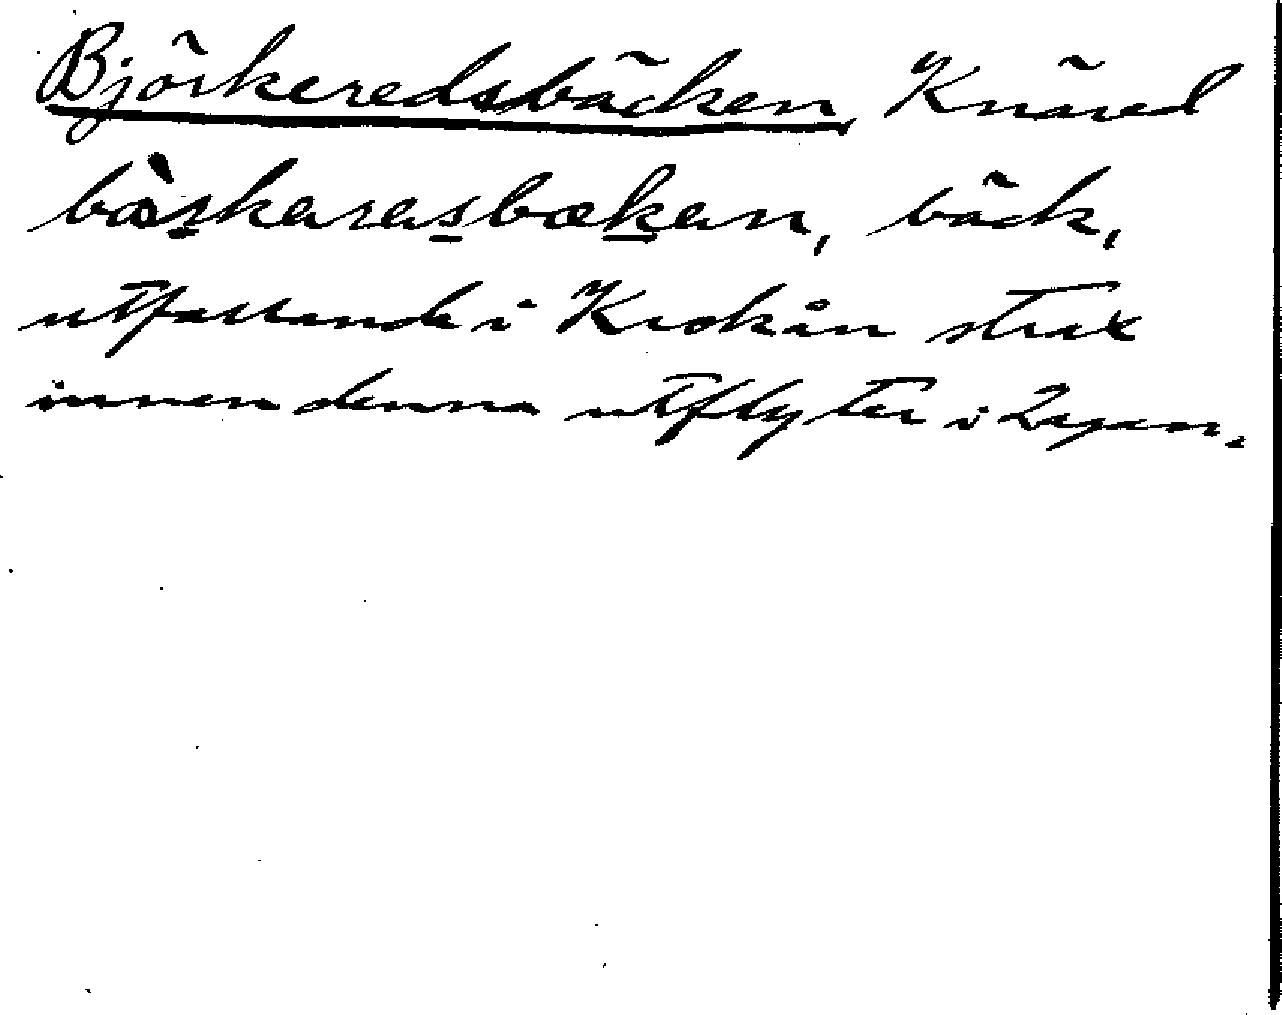 Björkeredsbäcken, Knäred
bàrkarasbækan, bäck,
utfallande i Krokån strax
innen denna utflyter i Lagan.